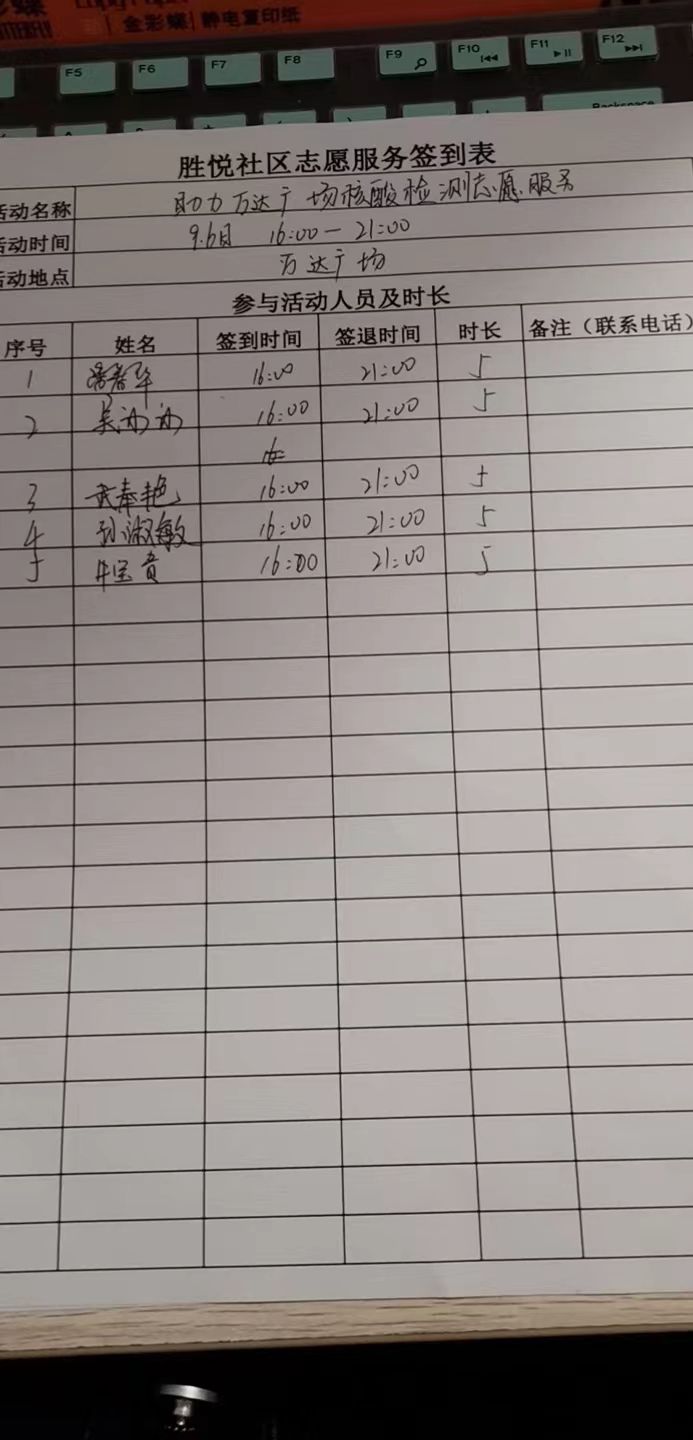 金彩蝶 静电复印纸
F5 F6 F7 F8 F9 F10 F11 F12
Backspace
胜悦社区志愿服务签到表
活动名称 助力万达广场核酸检测志愿服务
活动时间 9.6日 16:00-21:00
活动地点 万达广场
参与活动人员及时长
序号 姓名 签到时间 签退时间 时长 备注（联系电话）
1 16:00 21:00 5
2 吴 16:00 21:00 5
16=
3 武奉艳 16:00 21:00 5
4 孙淑敏 16:00 21:00 5
5 牛宝贵 16:00 21:00 5